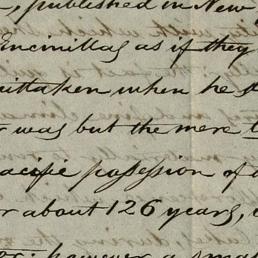 , published in New
Encinillas as if they
mittaken, when he
was but the mere
acific possession of
r about 126 years,
however a small